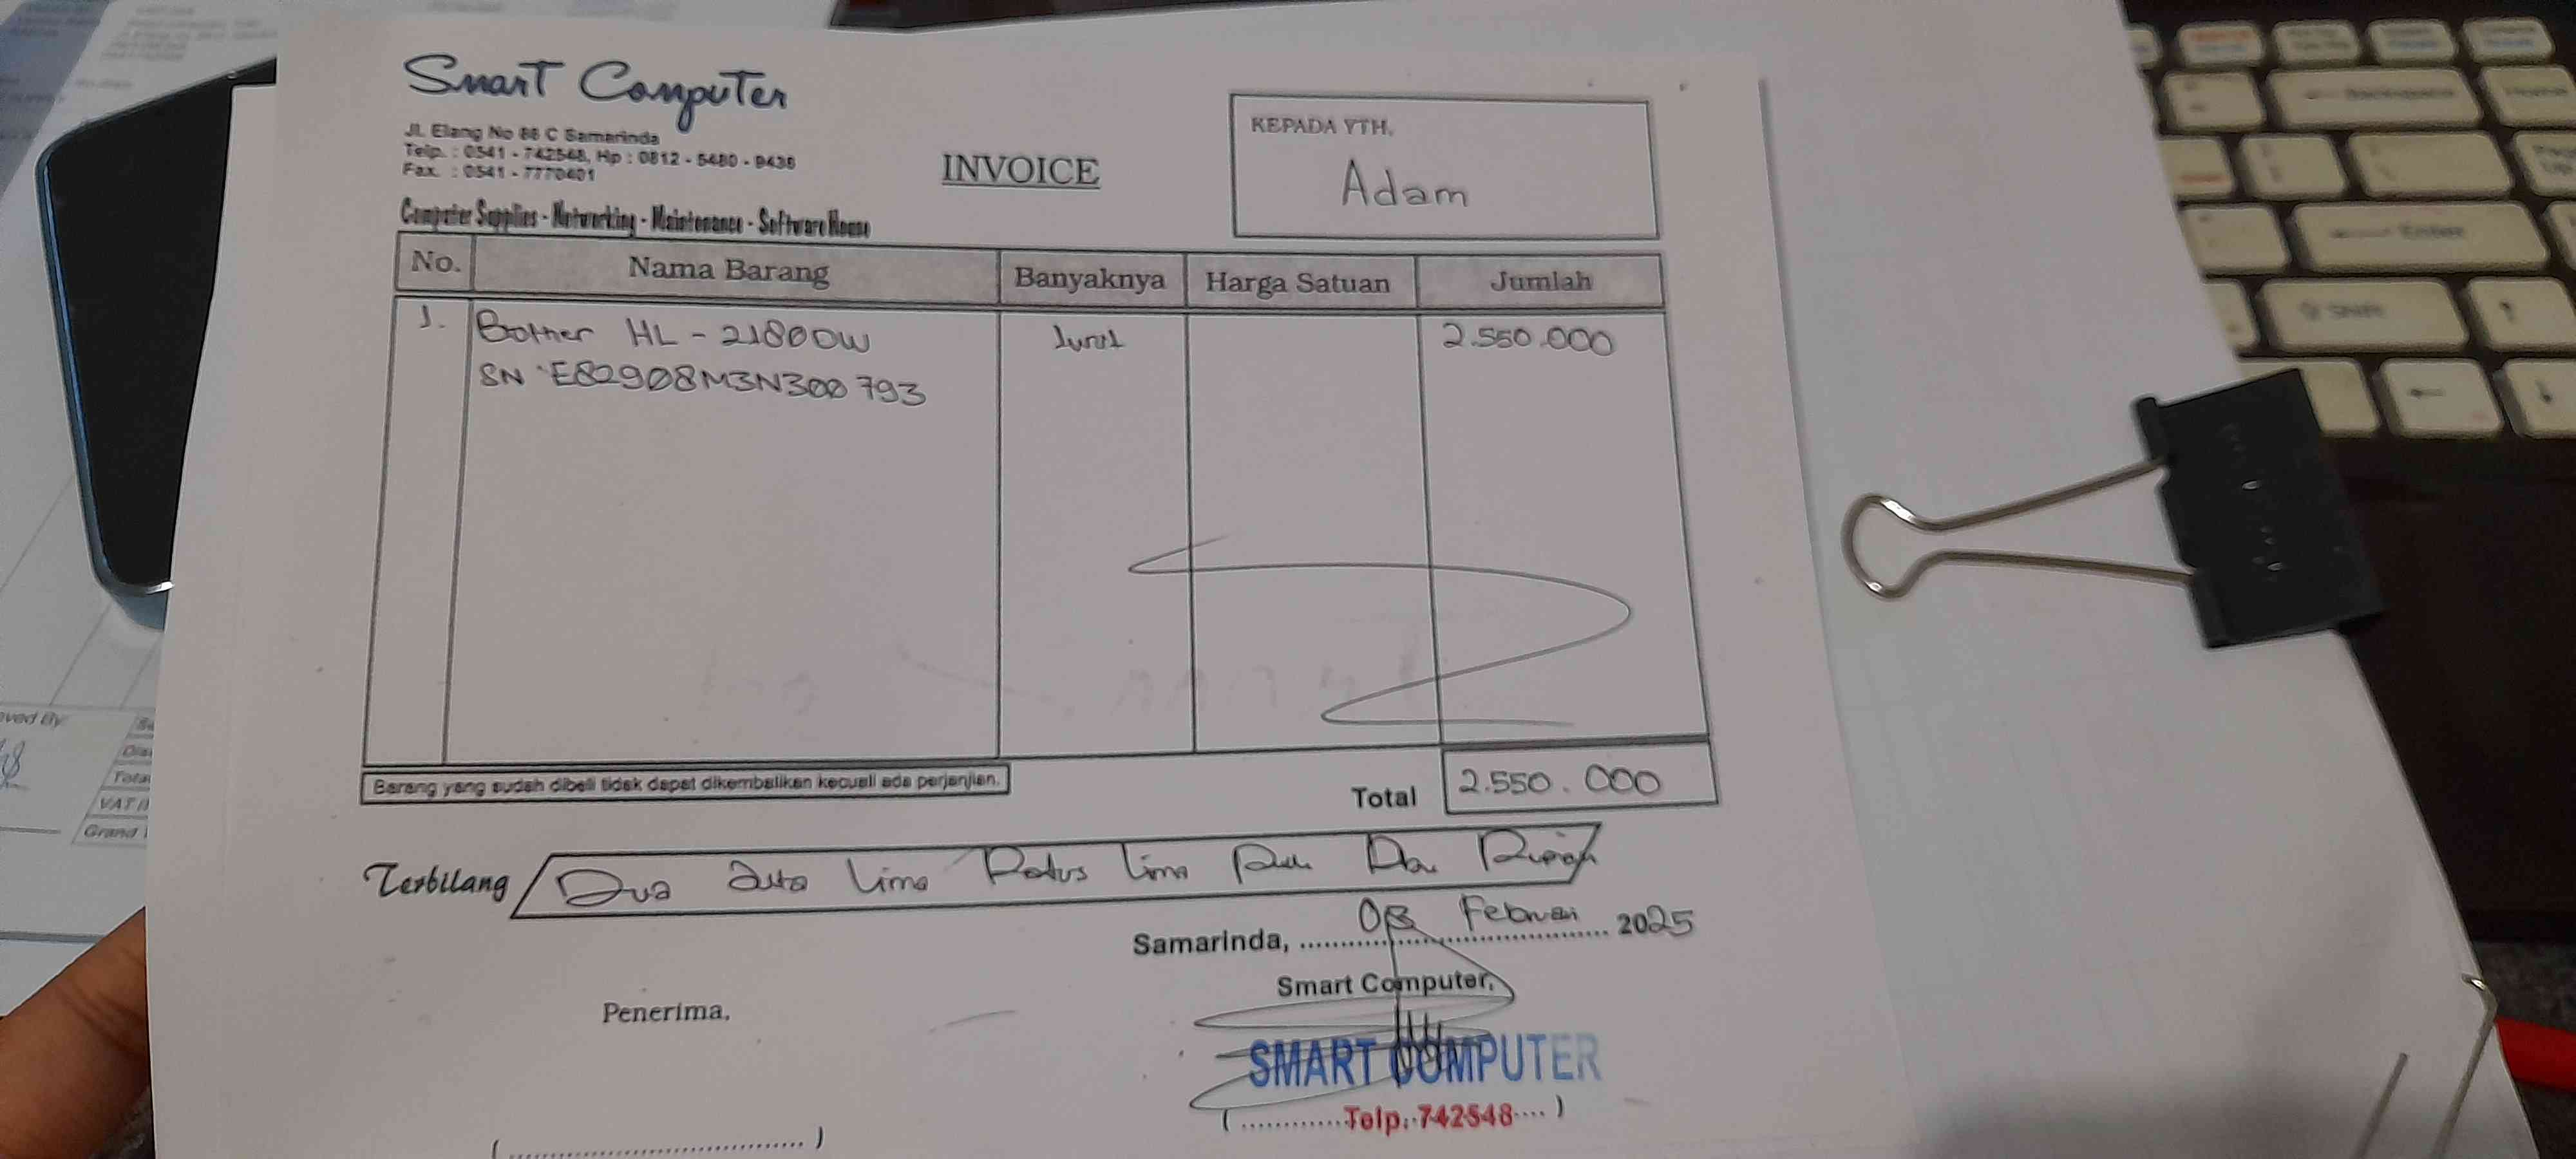 Smart Computer
Jl. Elang No 88 C Samarinda
Telp. : 0541 - 742548, Hp : 0812 - 5480 - 9438
Fax. : 0541 - 7770401
Computer Supplies - Networking - Maintenance - Software House
INVOICE
KEPADA YTH,
Adam
No. Nama Barang Banyaknya Harga Satuan Jumlah
1. Brother HL - 2180DW 1unit 2.550.000
SN : E82908M3N300793
Barang yang sudah dibeli tidak dapat dikembalikan kecuali ada perjanjian.
Total 2.550.000
Terbilang Dua Juta Lima Ratus Lima Puluh Rupiah
Samarinda, Februari 2025
Smart Computer,
Penerima,
SMART COMPUTER
(............Telp.:742548....)
(................................)
oved By:
Tota
VAT (
Grand
Backspace
Home
Enter
Shift